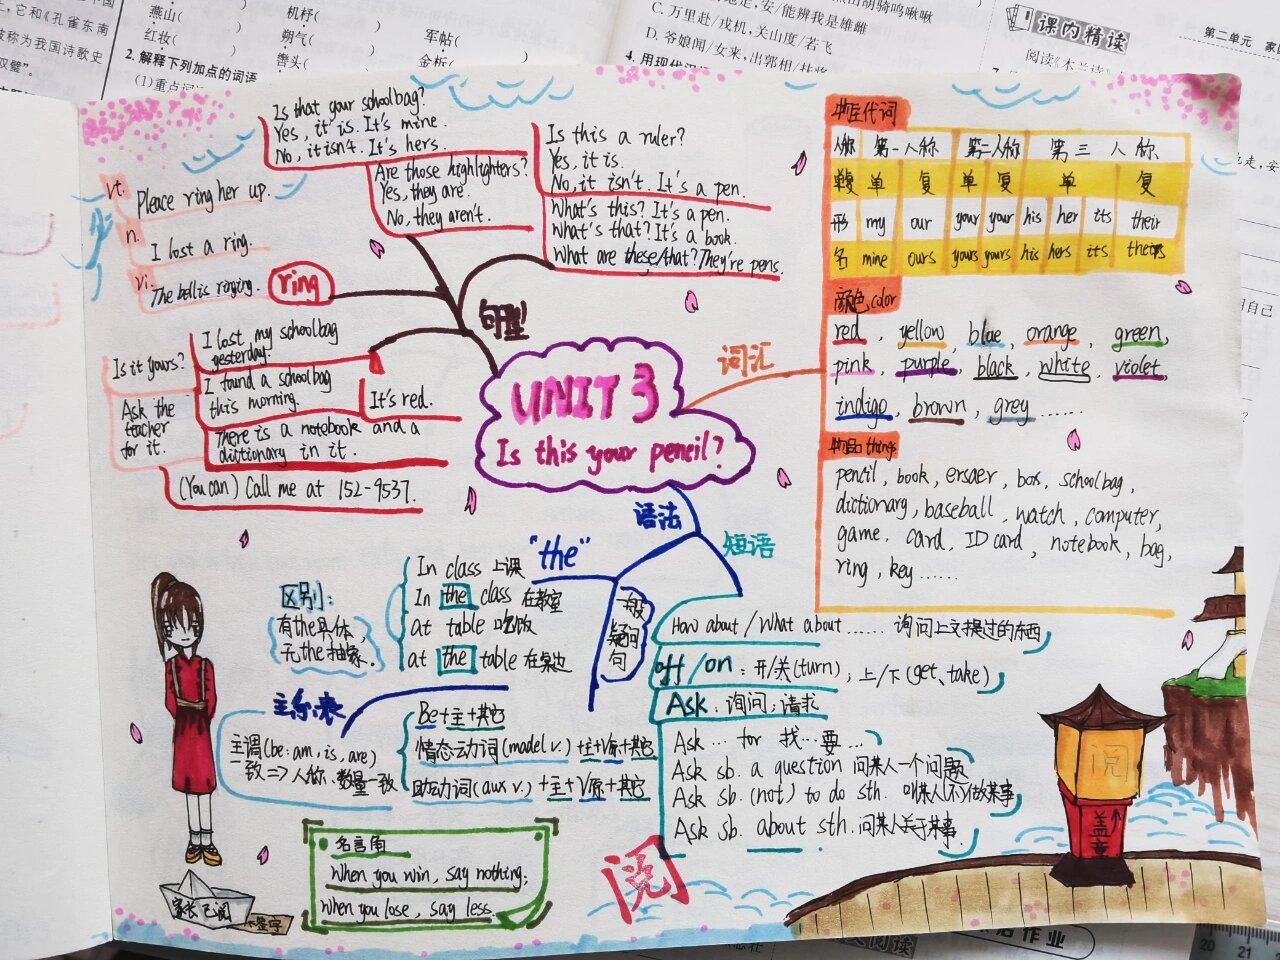 它和《孔雀东南
被称为我国诗歌史
双璧”。
燕山(
)
机杼(
)
红妆(
)
朔气(
)
军帖(
)
2. 解释下列加点的词语
辔头(
)
金柝(
)
(1)重点词
C. 万里赴/戎机,关山度/若飞
D. 爷娘闻/女来,出郭相/扶将
课内精读
第二单元
阅读《木兰诗》
Is that your schoolbag?
Yes, it is. It's mine.
No, it isn't. It's hers.
Are those highlighters?
Yes, they are.
No, they aren't.
Is this a ruler?
Yes, it is.
No, it isn't. It's a pen.
What's this? It's a pen.
What's that? It's a book.
What are these/that? They're pens.
vt. Pleace ring her up.
n. I lost a ring.
vi. The bell is ringing.
ring
句型
I lost my schoolbag
yesterday.
Is it yours?
I found a schoolbag
this morning.
It's red.
Ask the
teacher
for it.
There is a notebook and a
dictionary in it.
(You can) Call me at 152-9537.
UNIT 3
Is this your pencil?
词汇
物主代词
人称 第一人称 第二人称 第三人称
单复 单 复 单 复 单 复
形 my our your your his her its their
名 mine ours yours yours his hers its theirs
颜色 color
red, yellow, blue, orange, green,
pink, purple, black, white, violet,
indigo, brown, grey ......
物品 things
pencil, book, ersaer, box, schoolbag,
dictionary, baseball, watch, computer,
game, card, ID card, notebook, bag,
ring, key ......
语法
短语
"the"
一般疑问句
区别:
有the具体,
无the抽象.
In class 上课
In the class 在教室
at table 吃饭
at the table 在桌边
主系表
主调(be: am, is, are)
一致=>人称、数量一致
Be+主+其它
情态动词(model v.)+主+V原+其它
助动词(aux v.)+主+V原+其它
How about / What about ...... 询问上文提过的东西
off/on: 开/关(turn); 上/下(get、take)
Ask: 询问; 请求
Ask … for 找…要…
Ask sb. a question 问某人一个问题
Ask sb. (not) to do sth. 叫某人(不)做某事
Ask sb. about sth. 问某人关于某事.
名言角
When you win, say nothing;
When you lose, say less.
家长已阅
签字
阅
阅
盖章
20 21